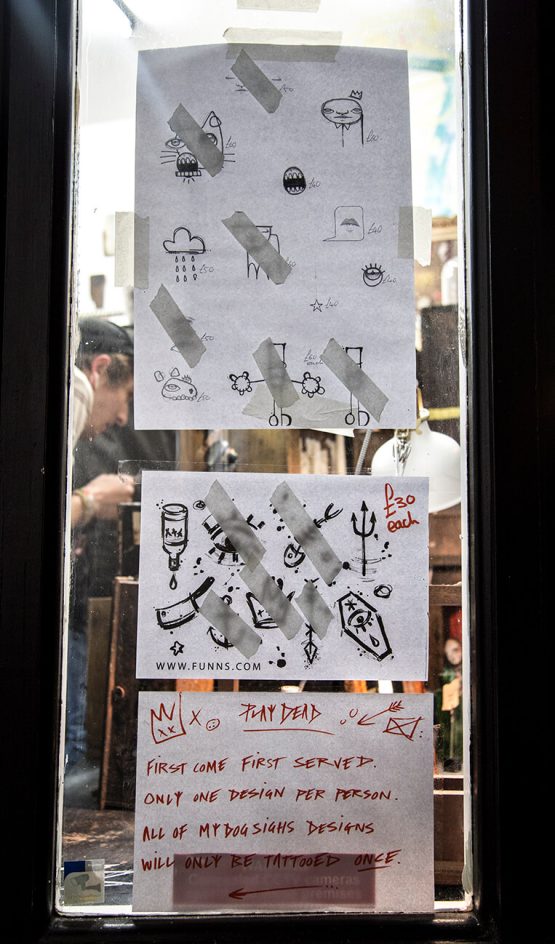 £50
£60
£80
£40
£40
£50
£40
£40
£50
£60
each
£50
£30
each
XXX
WWW.FUNNS.COM
XX X PLAY DEAD
FIRST COME FIRST SERVED.
ONLY ONE DESIGN PER PERSON.
ALL OF MY DOG SIGHS DESIGNS
WILL ONLY BE TATTOOED ONCE.
cameras